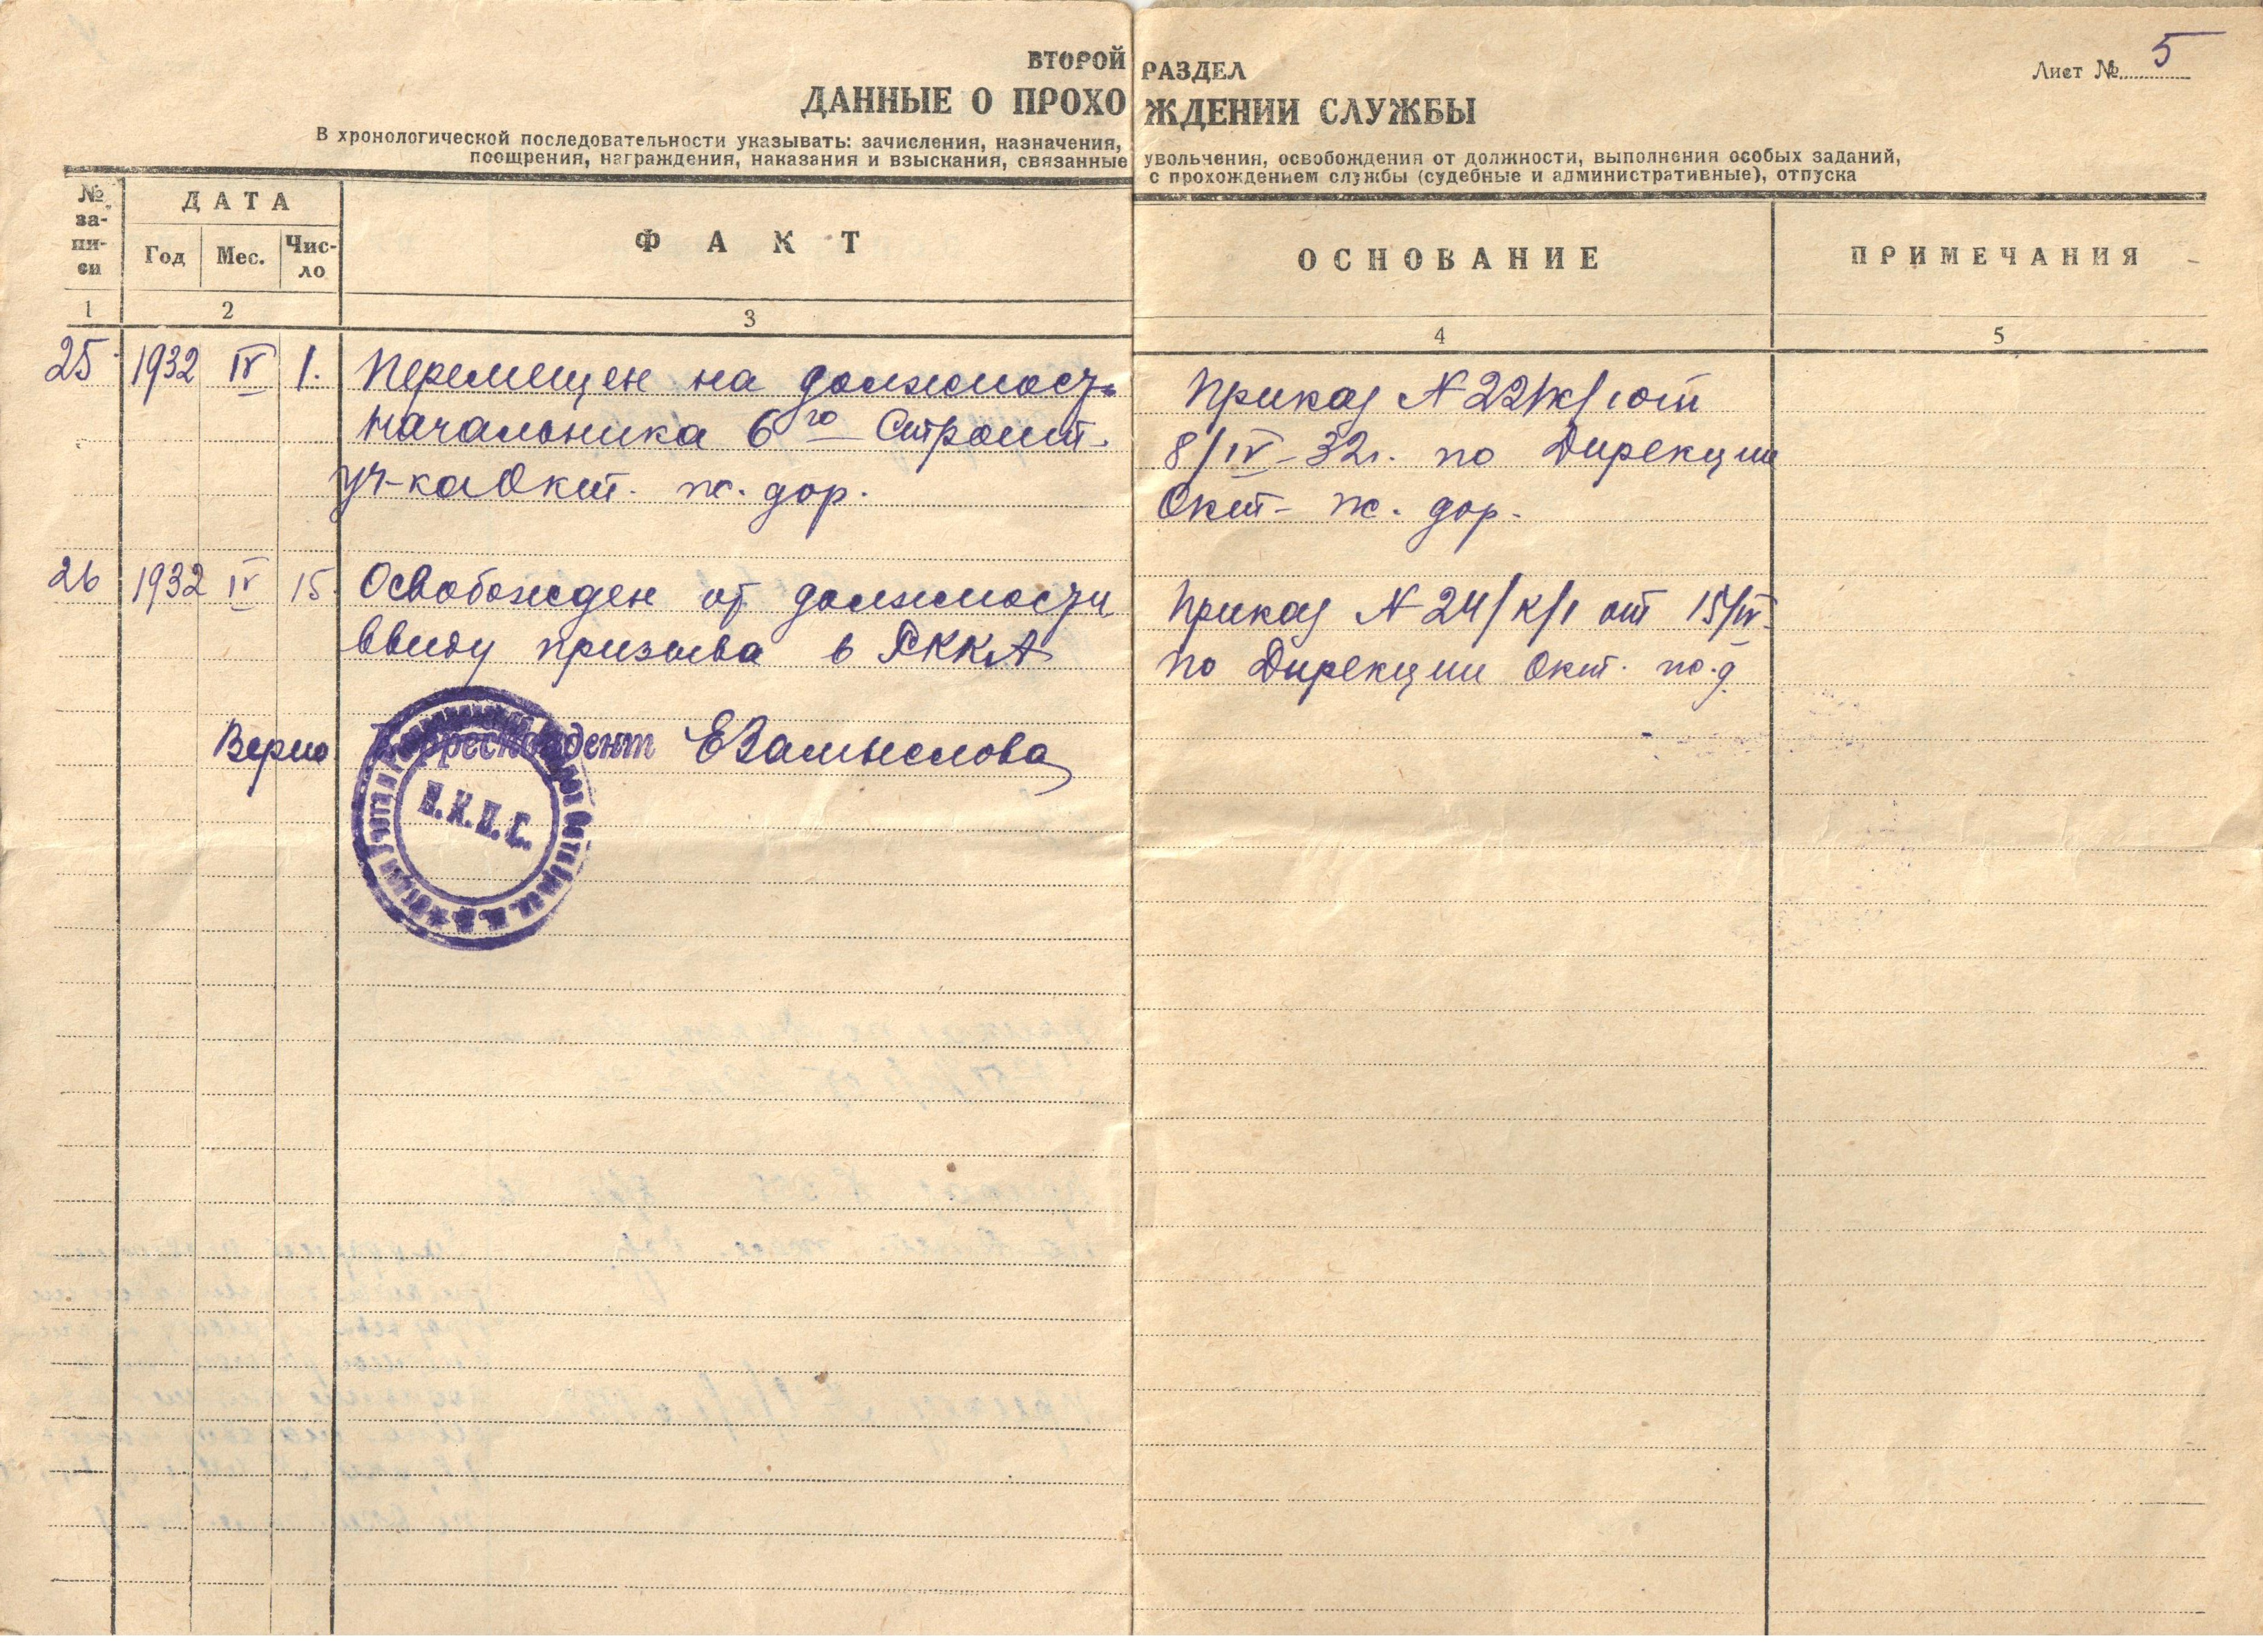 ВТОРОЙ РАЗДЕЛ
Лист № 5
ДАННЫЕ О ПРОХОЖДЕНИИ СЛУЖБЫ
В хронологической последовательности указывать: зачисления, назначения, увольчения, освобождения от должности, выполнения особых заданий,
поощрения, награждения, наказания и взыскания, связанные с прохождением службы (судебные и административные), отпуска
№ за-
пи-
си
ДАТА
Год Мес. Чис-
ло
ФАКТ
ОСНОВАНИЕ
ПРИМЕЧАНИЯ
1 2 3 4 5
25 1932 IV 1. Перемещен на должность
начальника 6го Строит.
уч-ка Окт. ж. дор.
Приказ N 22/к/1 от
8/IV-32г. по Дирекции
Окт- ж. дор.
26 1932 IV 15 Освобожден от должности
ввиду призыва в РККА
Приказ N 24/к/1 от 15/IV-
по Дирекции Окт. ж.д.
Верно Корреспондент ЕЗамыслова
Н.К.П.С.